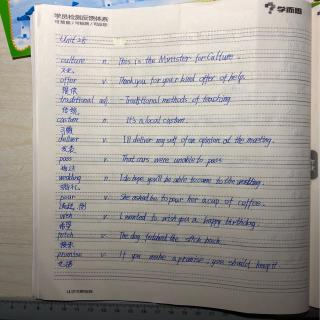 学员检测反馈体系
可检测 / 可追溯 / 可运用
学而思
Unit 25
culture n. This is the Minister for Culture.
文化
offer v. Thank you for your kind offer of help.
提供
traditional adj. Traditional methods of teaching
传统
custom n. It's a local custom.
习惯
deliver v. I'll deliver myself of an opinion at the meeting.
发表
pass v. That cars were unable to pass.
wedding n. I do hope you'll be able to come to the wedding.
婚礼
pour v. She asked to pour her a cup of coffee.
wish v. I wanted to wish you a happy birthday.
希望
fetch v. The dog fetched the stick back.
promise v. If you make a promise, you should keep it.